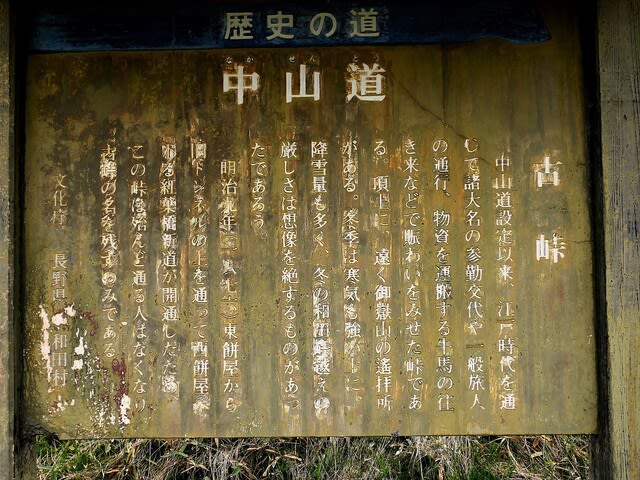 歴史の道
なか せん どう
中山道
古峠
中山道設定以来、江戸時代を通
じて諸大名の参勤交代や一般旅人
の通行、物資を運搬する牛馬の往
き来などで賑わいをみせた峠であ
る。頂上に、遠く御嶽山の遙拝所
がある。冬季は寒気も強い上に、
降雪量も多く、冬の和田峠越えの
厳しさは想像を絶するものがあっ
たであろう。
明治九年(一八七六)東餅屋から
旧トンネルの上を通って西餅屋へ
下る紅葉橋新道が開通したため
この峠は殆んど通る人はなくなり
古峠の名を残すのみである。
文化庁 長野県 和田村